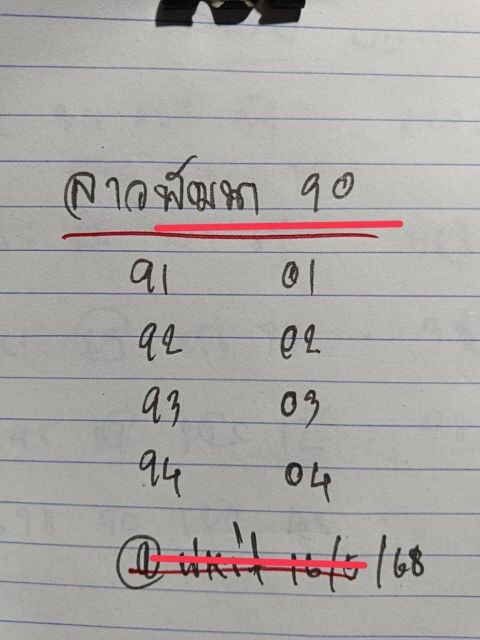 ลาวพัฒนา 90
91 01
92 02
93 03
94 04
/68